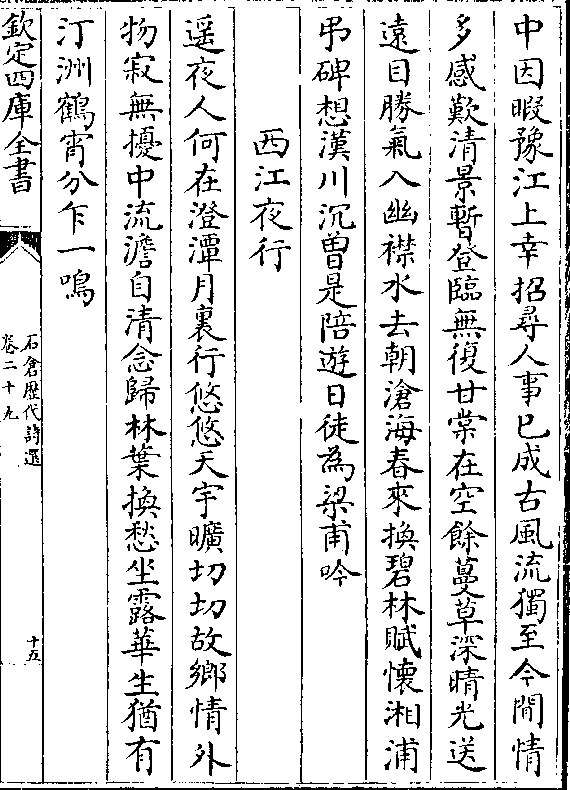 中因暇豫江上幸招尋人事已成古風流獨至今閒情
多感歎清景暫登臨無復甘棠在空餘蔓草深晴光送
遠目勝氣入幽襟水去朝滄海春來換碧林賦懷湘浦
弔碑想漢川沉曽是陪遊日徒為梁甫吟
西江夜行
遥夜人何在澄潭月裏行悠悠天宇曠切切故鄉情外
物寂無擾中流澹自清念歸林葉換愁坐露華生猶有
汀洲鶴宵分乍一鳴
欽定四庫全書
石倉歴代詩選
卷二十九
十五